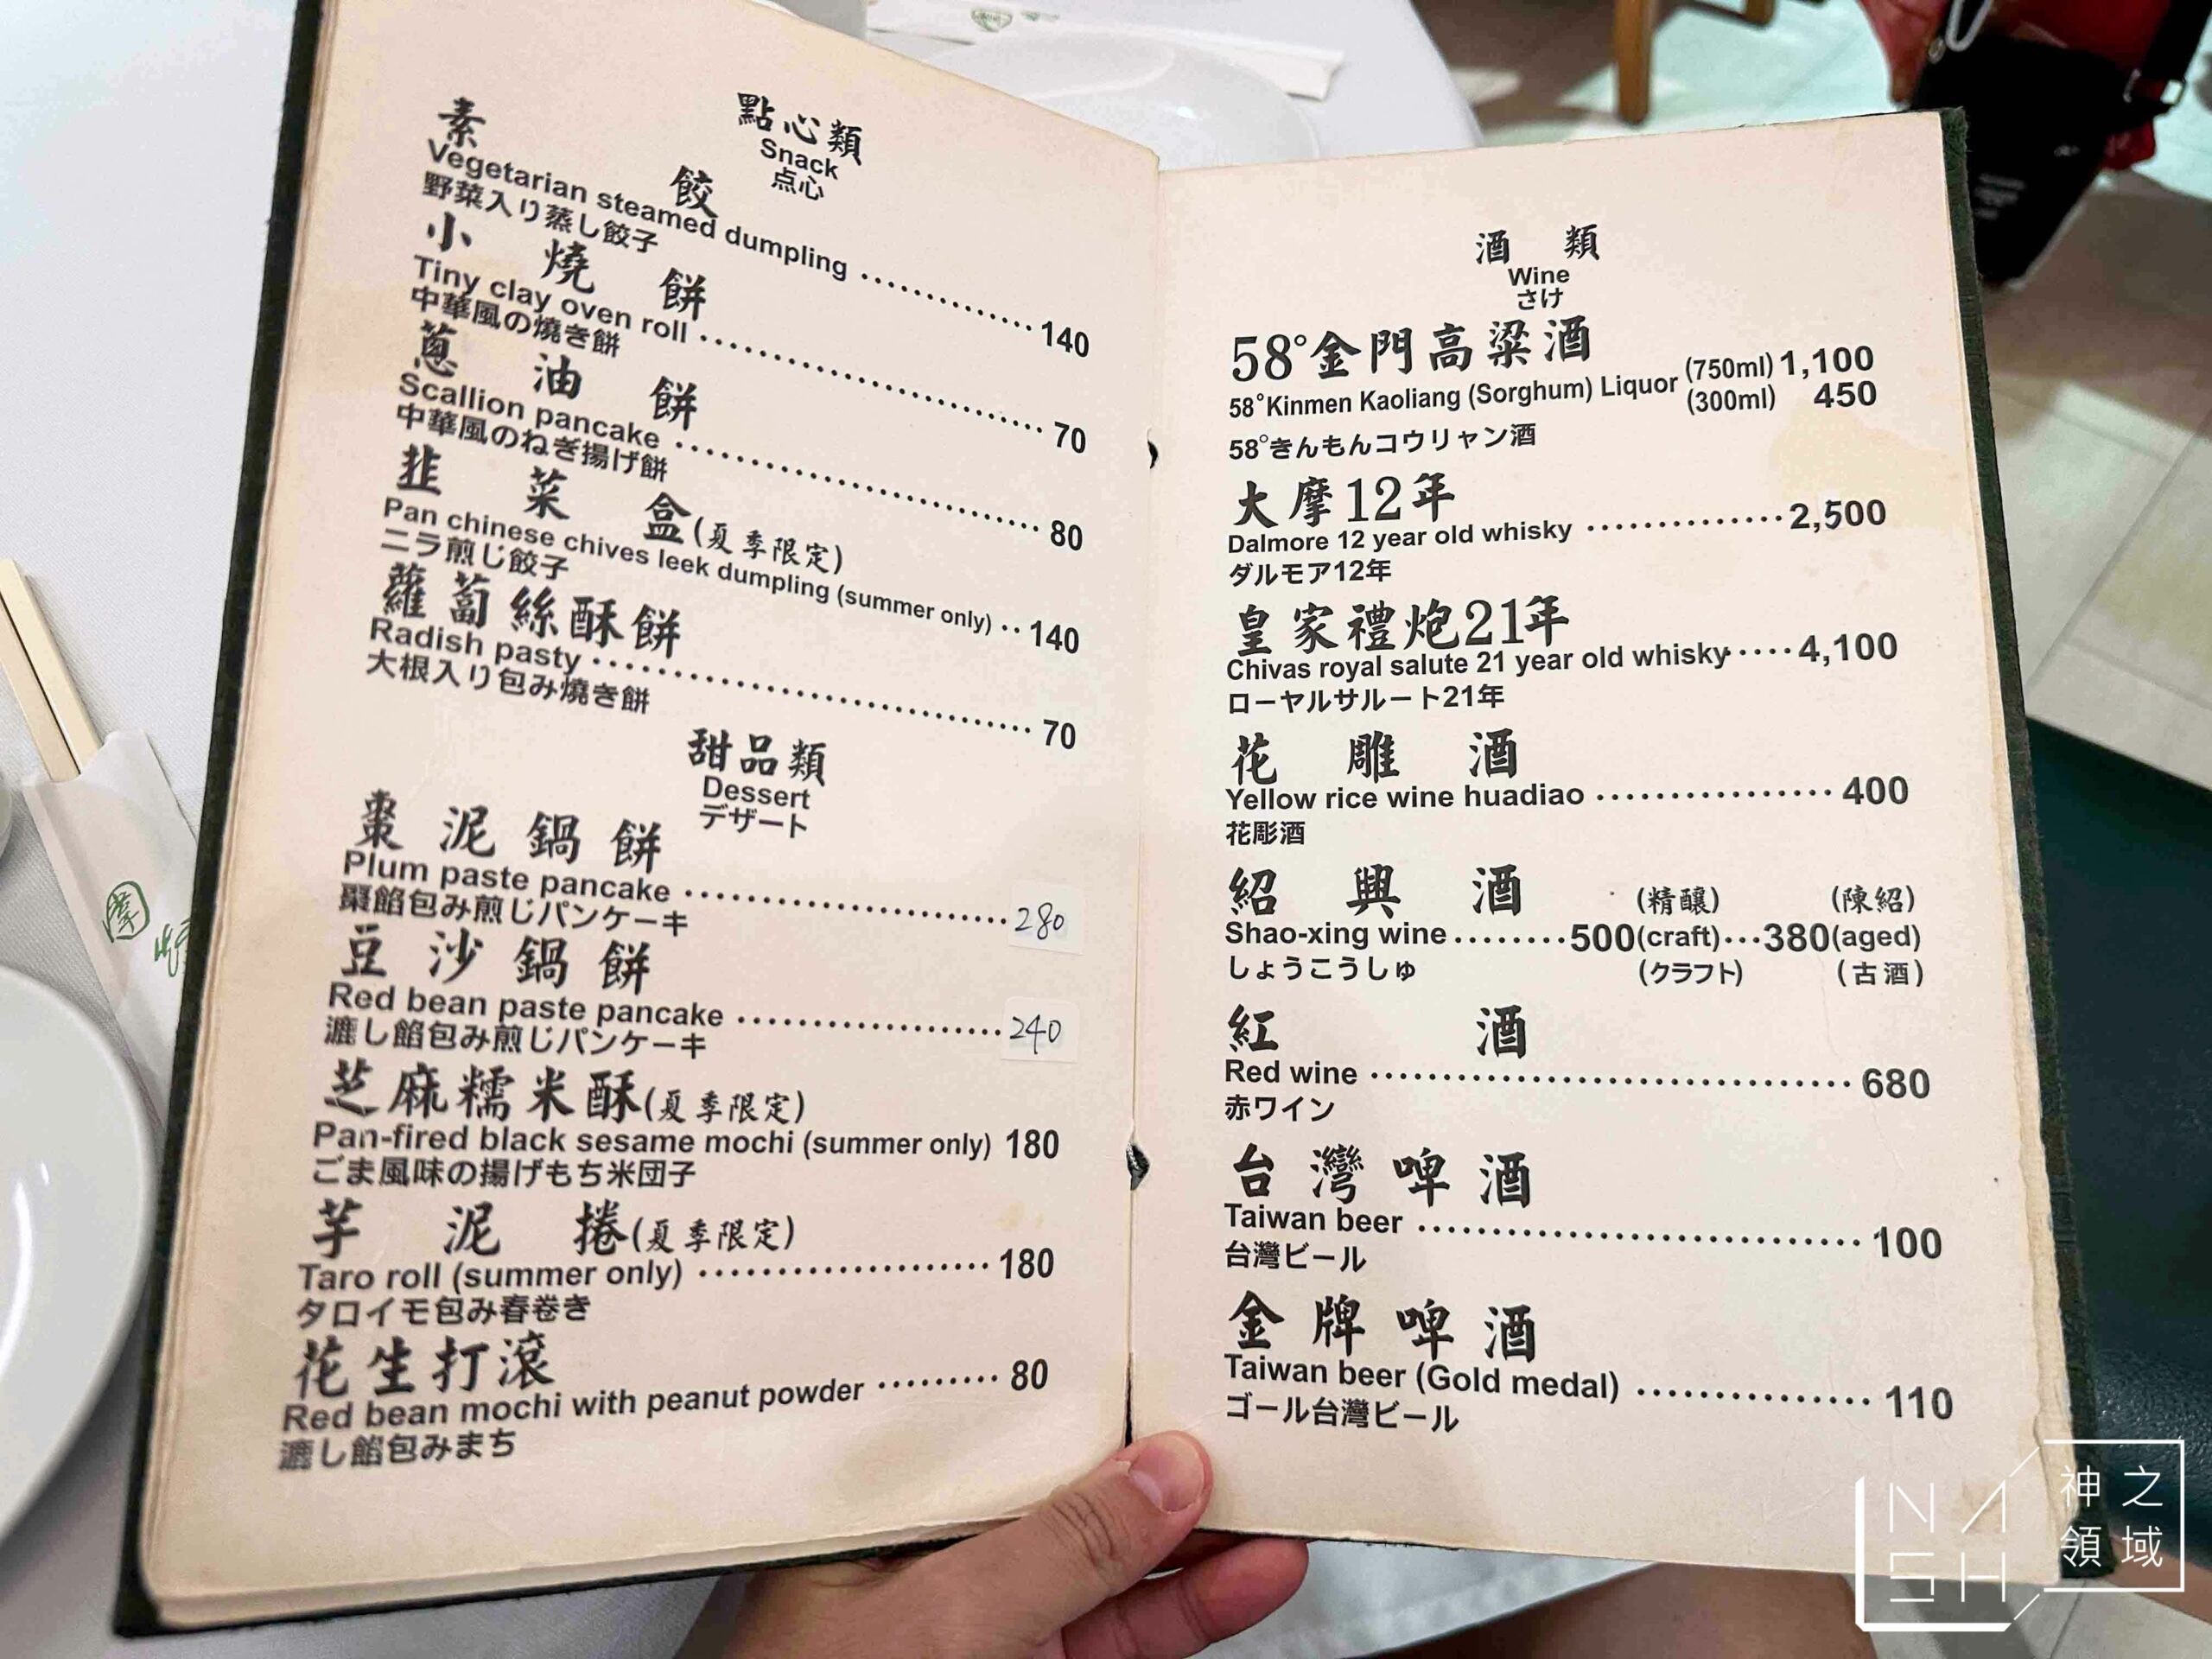 點心類
Snack
点心
素 餃
Vegetarian steamed dumpling 140
野菜入り蒸し餃子
小燒餅
Tiny clay oven roll 70
中華風の焼き餅
蔥油餅
Scallion pancake 80
中華風のねぎ揚げ餅
韭菜盒(夏季限定)
Pan chinese chives leek dumpling (summer only) 140
ニラ煎じ餃子
蘿蔔絲酥餅
Radish pasty 70
大根入り包み焼き餅
甜品類
Dessert
デザート
棗泥鍋餅
Plum paste pancake 280
棗餡包み煎じパンケーキ
豆沙鍋餅
Red bean paste pancake 240
漉し餡包み煎じパンケーキ
芝麻糯米酥(夏季限定)
Pan-fired black sesame mochi (summer only) 180
ごま風味の揚げもち米団子
芋泥捲(夏季限定)
Taro roll (summer only) 180
タロイモ包み春巻き
花生打滾
Red bean mochi with peanut powder 80
漉し餡包みまち
酒類
Wine
さけ
58°金門高粱酒
58°Kinmen Kaoliang (Sorghum) Liquor (750ml) 1,100
(300ml) 450
58°きんもんコウリャン酒
大摩12年
Dalmore 12 year old whisky 2,500
ダルモア12年
皇家禮炮21年
Chivas royal salute 21 year old whisky 4,100
ローヤルサルート21年
花雕酒
Yellow rice wine huadiao 400
花彫酒
紹興酒 (精釀) (陳紹)
Shao-xing wine 500(craft) 380(aged)
しょうこうしゅ (クラフト) (古酒)
紅酒
Red wine 680
赤ワイン
台灣啤酒
Taiwan beer 100
台灣ビール
金牌啤酒
Taiwan beer (Gold medal) 110
ゴール台灣ビール
NASH
神之
領域